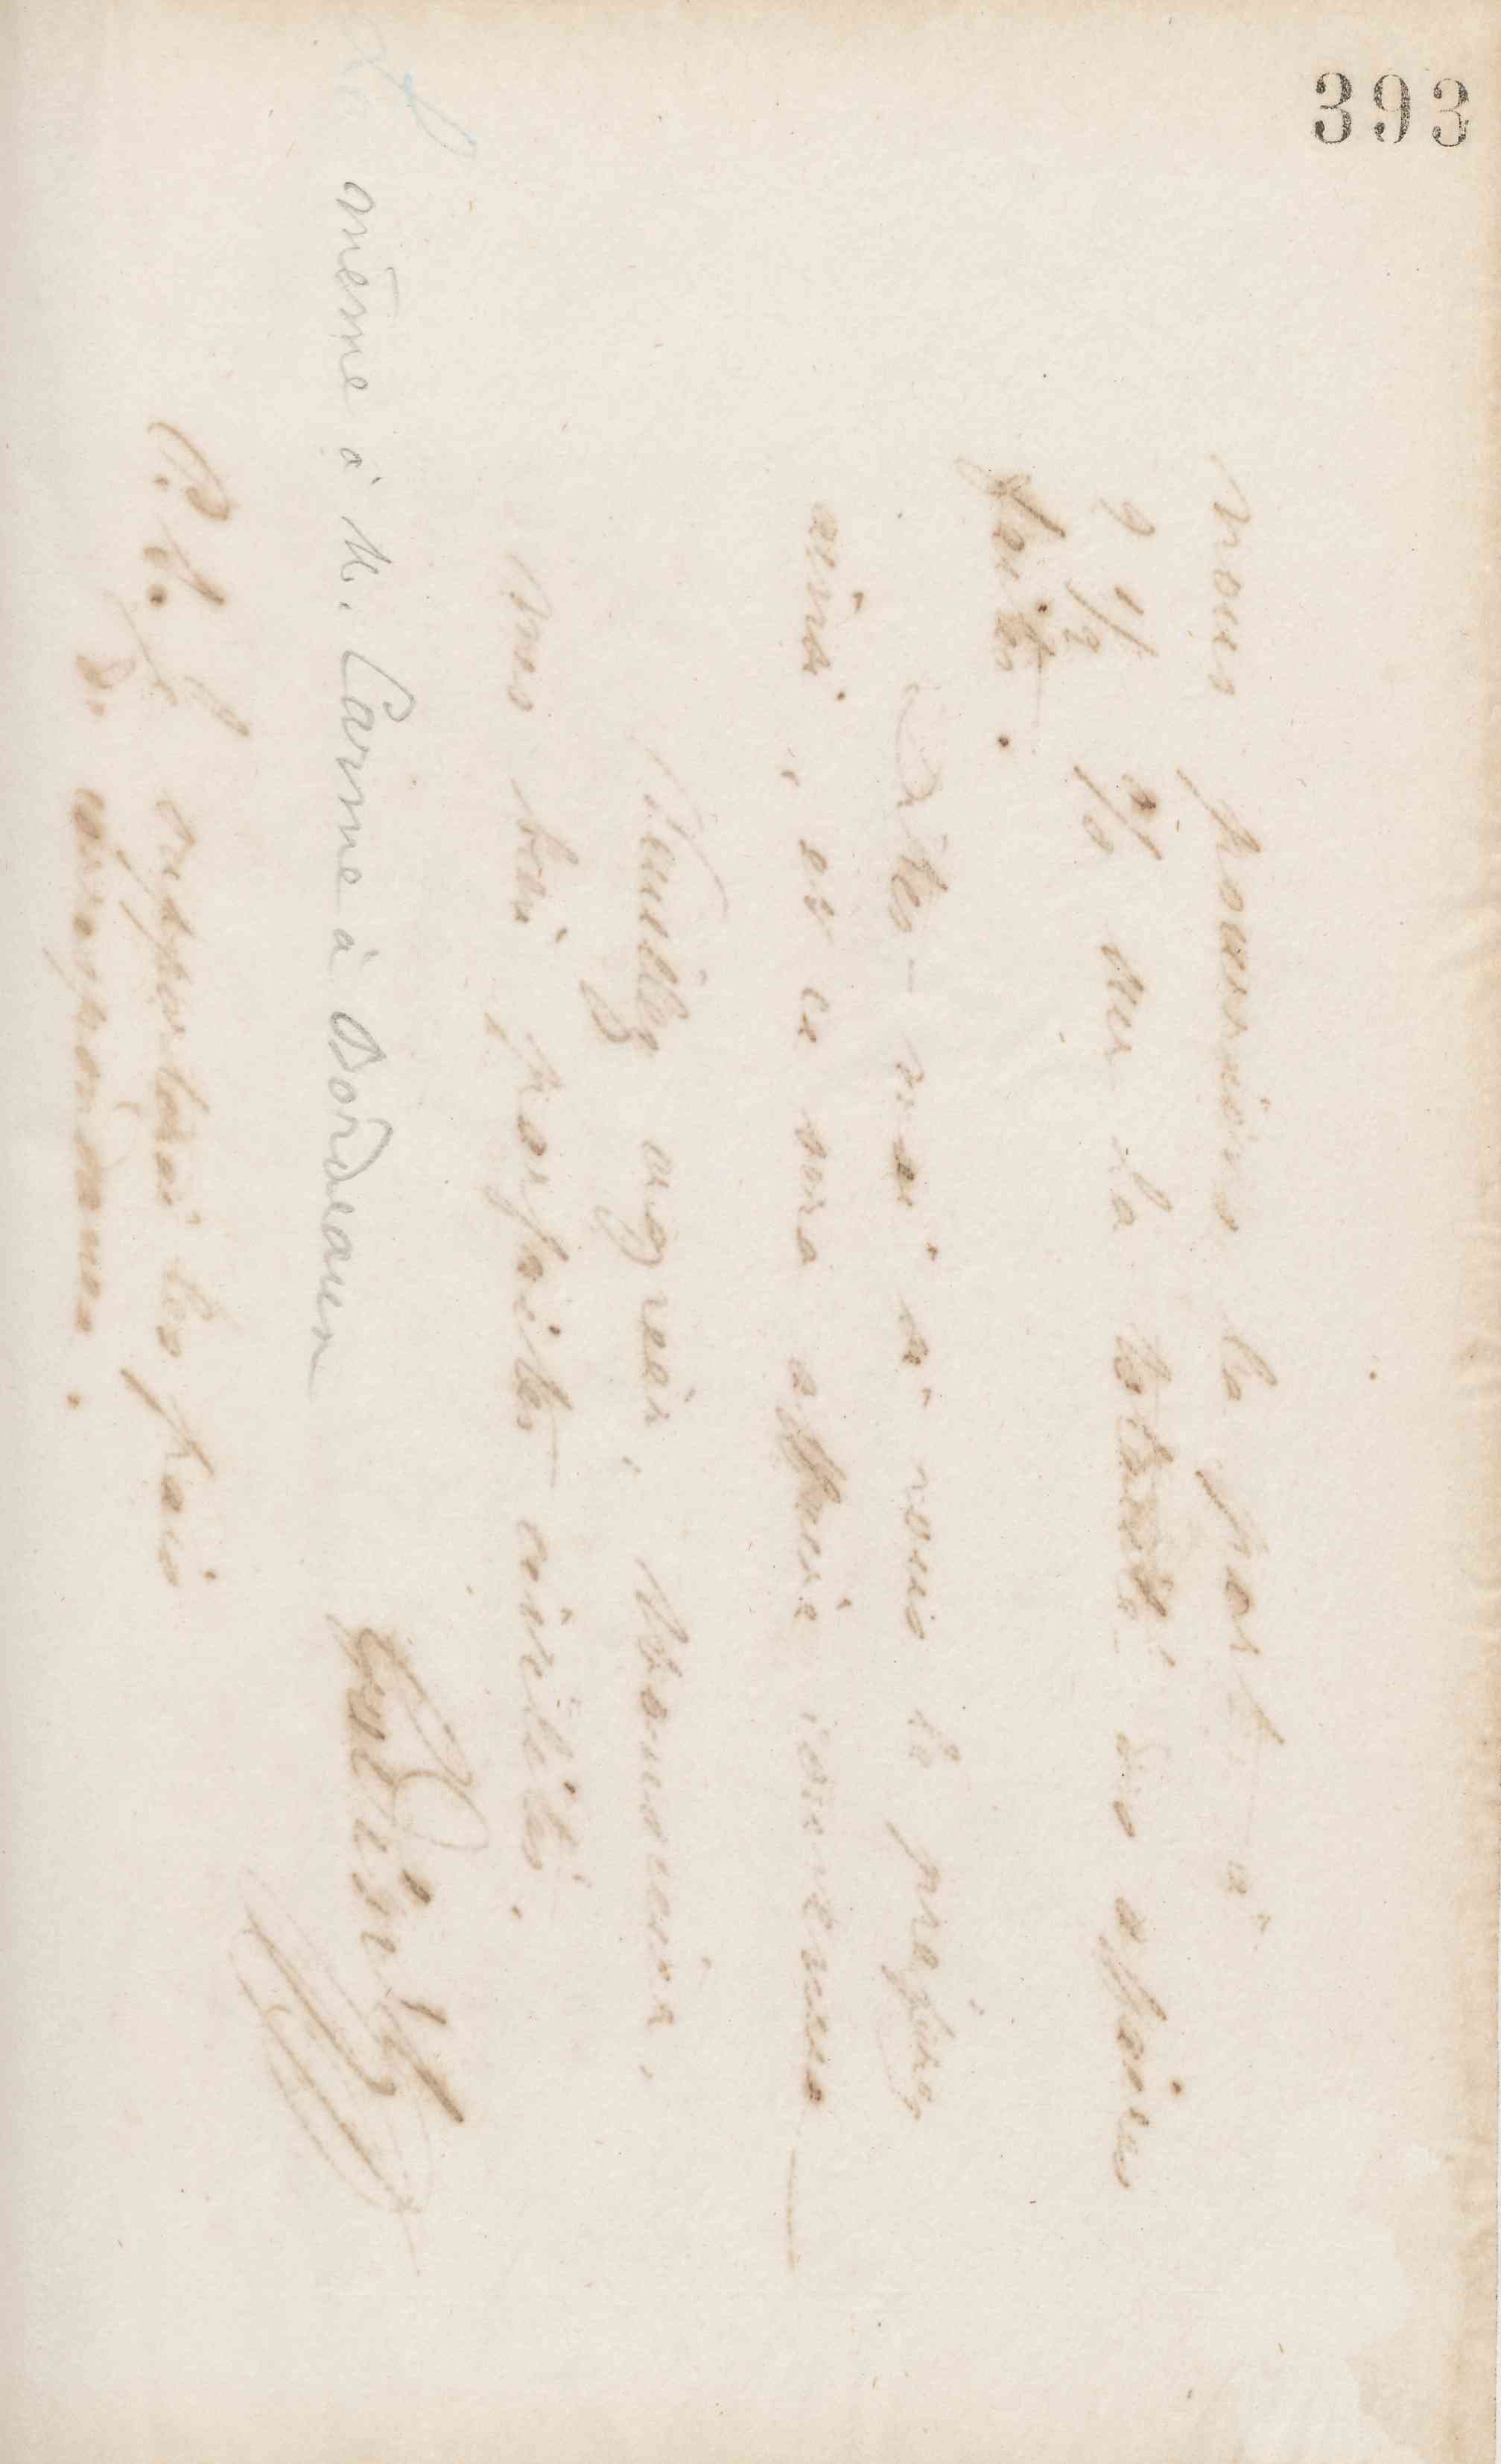 393
nous pourrions la porter à
2 1/2 % sur la totalité des affaires
faites.
Dites-moi si vous le préférez
ainsi, et ce sera affaire convenue
Veuillez agréer, Monsieur,
mes bien parfaites civilités.
même à M. Carme à Bordeaux
P.S. supporterai les frais
de correspondance.